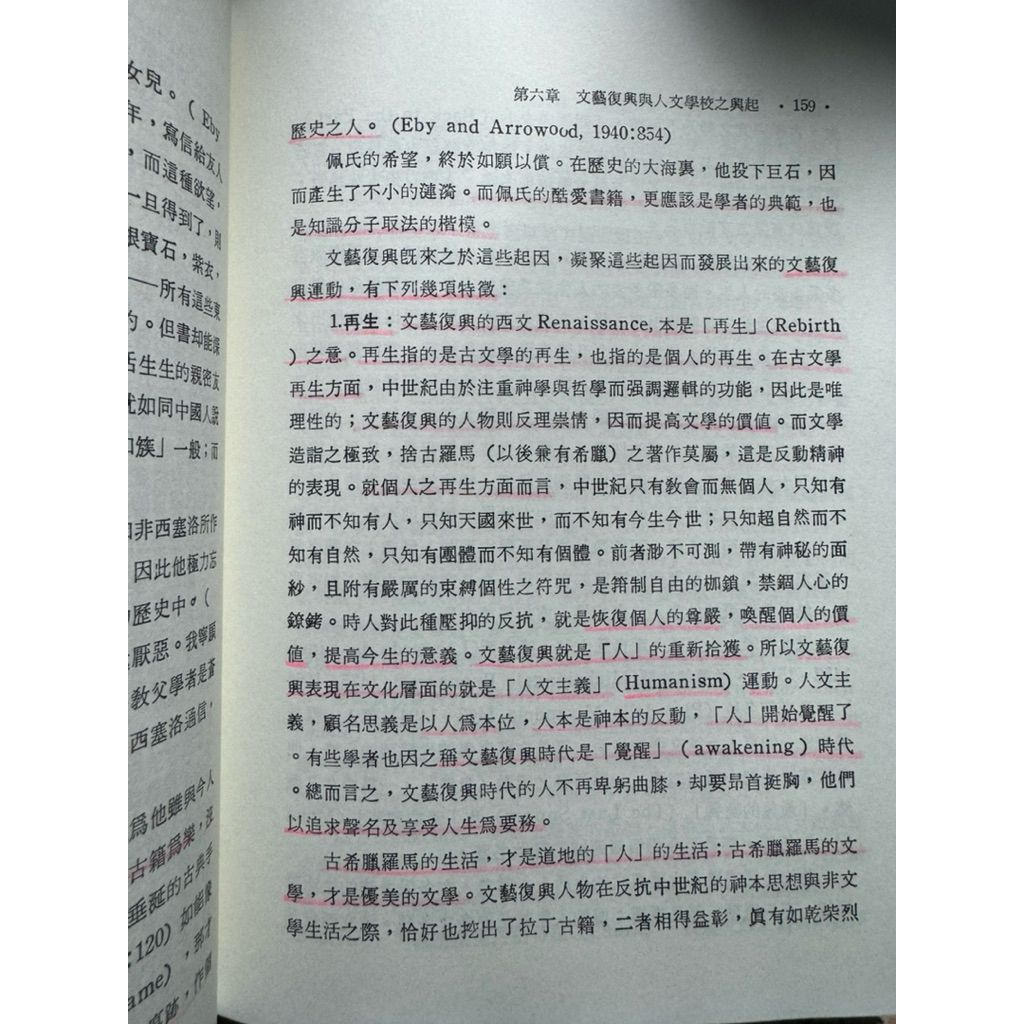 女兒。( Eby
年，寫信給友人
，而這種欲望，
一旦得到了，則
銀寶石，紫衣，
——所有這些東
的。但書却能深
活生生的親密友
尤如同中國人說
和簇」一般；而
和非西塞洛所作
因此他極力忘
歷史中。(
厭惡。我寧願
教父學者是蒼
西塞洛通信，
爲他雖與今人
古籍爲樂，
垂涎的古典手
:120) 如能像
ame)，那才
，作個
第六章　文藝復興與人文學校之興起　·159·
歷史之人。(Eby and Arrowood, 1940:854)
佩氏的希望，終於如願以償。在歷史的大海裏，他投下巨石，因
而產生了不小的漣漪。而佩氏的酷愛書籍，更應該是學者的典範，也
是知識分子取法的楷模。
文藝復興旣來之於這些起因，凝聚這些起因而發展出來的文藝復
興運動，有下列幾項特徵：
1.再生：文藝復興的西文 Renaissance, 本是「再生」(Rebirth
) 之意。再生指的是古文學的再生，也指的是個人的再生。在古文學
再生方面，中世紀由於注重神學與哲學而强調邏輯的功能，因此是唯
理性的；文藝復興的人物則反理崇情，因而提高文學的價值。而文學
造詣之極致，捨古羅馬（以後兼有希臘）之著作莫屬，這是反動精神
的表現。就個人之再生方面而言，中世紀只有敎會而無個人，只知有
神而不知有人，只知天國來世，而不知有今生今世；只知超自然而不
知有自然，只知有團體而不知有個體。前者渺不可測，帶有神秘的面
紗，且附有嚴厲的束縛個性之符咒，是箝制自由的枷鎖，禁錮人心的
鐐銬。時人對此種壓抑的反抗，就是恢復個人的尊嚴，喚醒個人的價
值，提高今生的意義。文藝復興就是「人」的重新拾獲。所以文藝復
興表現在文化層面的就是「人文主義」(Humanism) 運動。人文主
義，顧名思義是以人爲本位，人本是神本的反動，「人」開始覺醒了
。有些學者也因之稱文藝復興時代是「覺醒」（awakening）時代
。總而言之，文藝復興時代的人不再卑躬曲膝，却要昂首挺胸，他們
以追求聲名及享受人生爲要務。
古希臘羅馬的生活，才是道地的「人」的生活；古希臘羅馬的文
學，才是優美的文學。文藝復興人物在反抗中世紀的神本思想與非文
學生活之際，恰好也挖出了拉丁古籍，二者相得益彰，眞有如乾柴烈